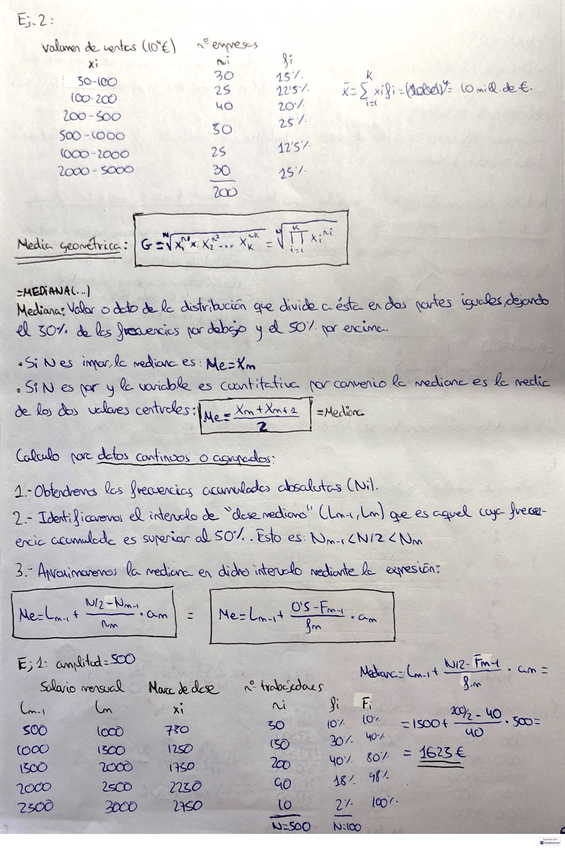 Ej. 2:
Volumen de ventas (10⁴€) nº empresas
xi ni fi
50-100 30 15%
100-200 25 12'5%
200-500 40 20%
500-1000 50 25%
1000-2000 25 12'5%
2000-5000 30 15%
200
x̄ = Σ xi fi = = 10 mill. de €.
Media geométrica: G = ᴺ√(x₁ⁿ¹ · x₂ⁿ² ... x_kⁿᵏ) = ᴺ√(∏ xiⁿⁱ)
=MEDIANA(...)
Mediana: Valor o dato de la distribución que divide a ésta en dos partes iguales, dejando
el 50% de las frecuencias por debajo y el 50% por encima.
• Si N es impar, la mediana es: Me = Xm
• Si N es par y la variable es cuantitativa por convenio la mediana es la media
de los dos valores centrales: Me = (Xm + Xm+1)/2 = Mediana
Calculo para datos continuos o agrupados:
1.- Obtendremos las frecuencias acumuladas absolutas (Ni).
2.- Identificaremos el intervalo de "clase mediano" (Lm-1, Lm) que es aquel cuya frecu-
encia acumulada es superior al 50%. Esto es: Nm-1 < N/2 < Nm
3.- Aproximaremos la mediana en dicho intervalo mediante la expresión:
Me = Lm-1 + (N/2 - Nm-1)/nm · am = Me = Lm-1 + (0'5 - Fm-1)/fm · am
Ej 1: amplitud = 500
Salario mensual Marca de clase nº trabajadores
Lm-1 Lm xi ni fi Fi
500 1000 750 50 10% 10%
1000 1500 1250 150 30% 40%
1500 2000 1750 200 40% 80%
2000 2500 2250 90 18% 98%
2500 3000 2750 10 2% 100%
N=500 N=100
Mediana = Lm-1 + (N/2 - Fm-1)/fm · am =
= 1500 + (100/2 - 40)/40 · 500 =
= 1625 €